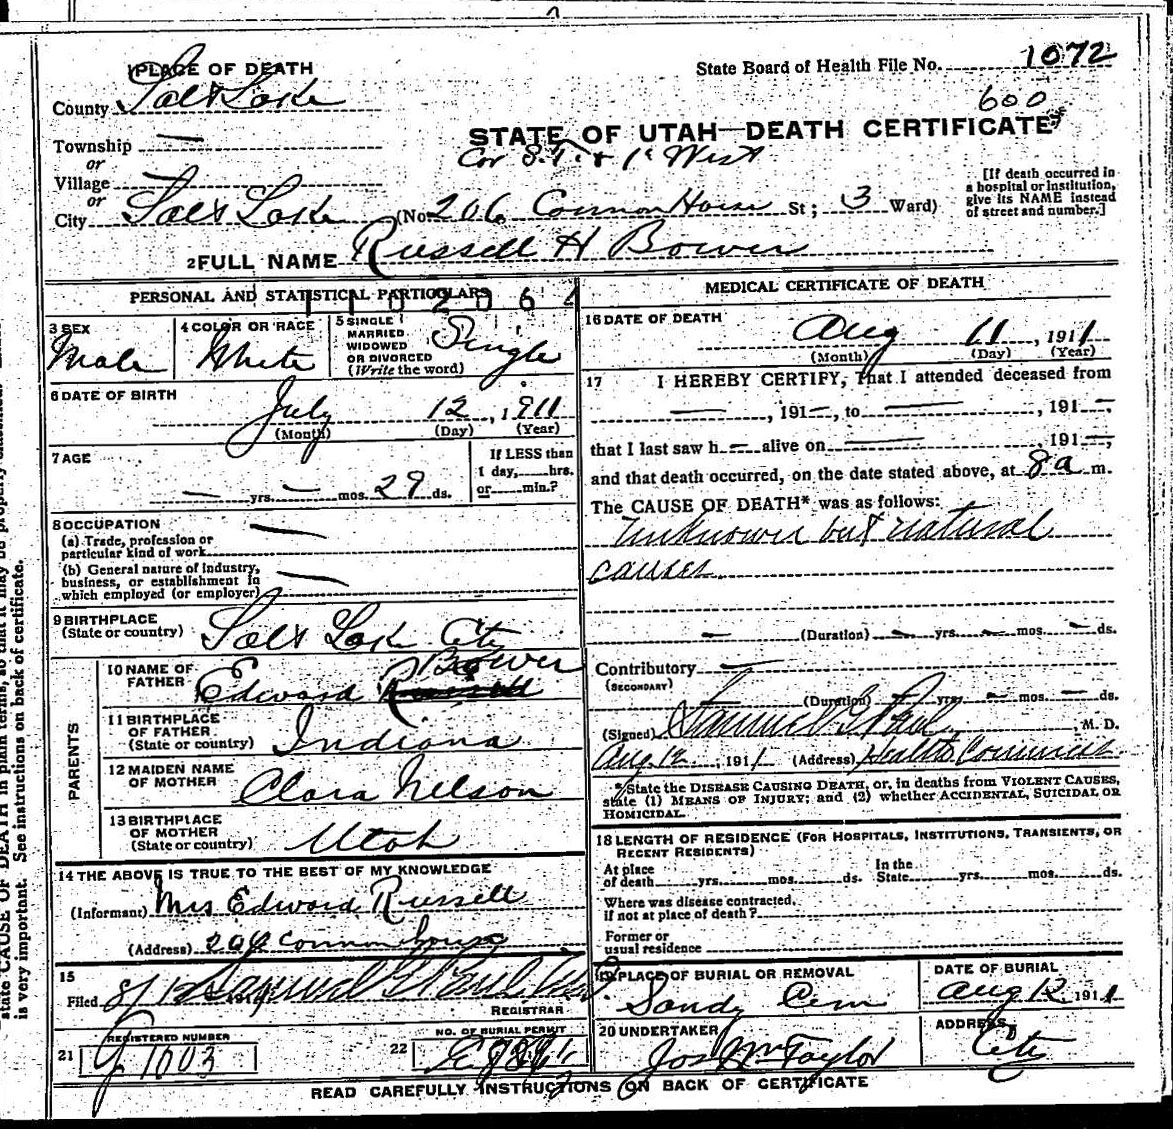 1 PLACE OF DEATH
State Board of Health File No. 1072
County Salt Lake
600
STATE OF UTAH—DEATH CERTIFICATE
Township —
or
Cor S.T. & 1st West
Village —
or
City Salt Lake (No. 206 Connor House St; 3 Ward)
[If death occurred in a hospital or institution, give its NAME instead of street and number.]
2 FULL NAME Russell H Bower
PERSONAL AND STATISTICAL PARTICULARS
MEDICAL CERTIFICATE OF DEATH
3 SEX
Male
4 COLOR OR RACE
White
5 SINGLE
MARRIED
WIDOWED
OR DIVORCED
(Write the word)
Single
6 DATE OF BIRTH
July 12, 1911
(Month) (Day) (Year)
7 AGE
— yrs. — mos. 29 ds.
If LESS than
1 day, hrs.
or min.?
8 OCCUPATION
(a) Trade, profession or
particular kind of work —
(b) General nature of industry,
business, or establishment in
which employed (or employer) —
9 BIRTHPLACE
(State or country) Salt Lake City
PARENTS
10 NAME OF
FATHER Edward Bower
11 BIRTHPLACE
OF FATHER
(State or country) Indiana
12 MAIDEN NAME
OF MOTHER Clara Nelson
13 BIRTHPLACE
OF MOTHER
(State or country) Utah
14 THE ABOVE IS TRUE TO THE BEST OF MY KNOWLEDGE
(Informant) Mrs Edward Russell
(Address)
15
Filed 8/12 1911 Samuel G Paul
REGISTRAR
REGISTERED NUMBER
21 1003
NO. OF BURIAL PERMIT
22
16 DATE OF DEATH
Aug 11, 1911
(Month) (Day) (Year)
17 I HEREBY CERTIFY, That I attended deceased from
—, 191—, to —, 191—,
that I last saw h — alive on —, 191—,
and that death occurred, on the date stated above, at 8 a m.
The CAUSE OF DEATH* was as follows:
unknown but natural
causes
— (Duration) — yrs. — mos. — ds.
Contributory —
(SECONDARY)
(Duration) yrs. — mos. — ds.
(Signed) Samuel G Paul, M. D.
Aug 12, 1911 (Address) Health Commis
*State the DISEASE CAUSING DEATH, or, in deaths from VIOLENT CAUSES,
state (1) MEANS OF INJURY; and (2) whether ACCIDENTAL, SUICIDAL OR
HOMICIDAL.
18 LENGTH OF RESIDENCE (FOR HOSPITALS, INSTITUTIONS, TRANSIENTS, OR
RECENT RESIDENTS)
At place
of death yrs. mos. ds.
In the
State yrs. mos. ds.
Where was disease contracted,
if not at place of death?
Former or
usual residence
19 PLACE OF BURIAL OR REMOVAL
Sandy Cem
DATE OF BURIAL
Aug 12 1911
20 UNDERTAKER
Jos Wm Taylor
ADDRESS
City
READ CAREFULLY INSTRUCTIONS ON BACK OF CERTIFICATE
state CAUSE OF DEATH in plain terms, so that it may be properly classified.
is very important. See instructions on back of certificate.